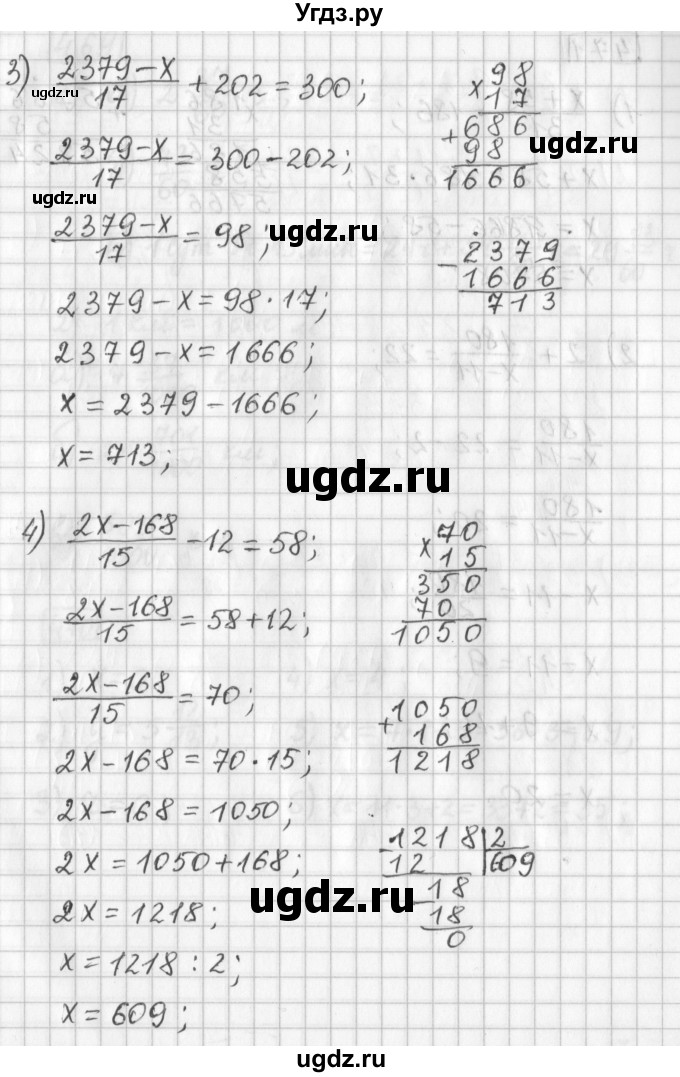 Угдз.ру
3) (2379-x)/17 + 202 = 300;
(2379-x)/17 = 300-202;
(2379-x)/17 = 98;
2379-x=98·17;
2379-x=1666;
x=2379-1666;
x=713;
98
×17
686
+98
1666
2379
-1666
713
4) (2x-168)/15 -12=58;
(2x-168)/15 = 58+12;
(2x-168)/15 = 70;
2x-168=70·15;
2x-168=1050;
2x=1050+168;
2x=1218;
x=1218:2;
x=609;
70
×15
350
70
1050
1050
+168
1218
-1218|2
12 |609
-18
18
0
ugdz.ru
ugdz.ru
ugdz.ru
ugdz.ru
ugdz.ru
ugdz.ru
ugdz.ru
ugdz.ru